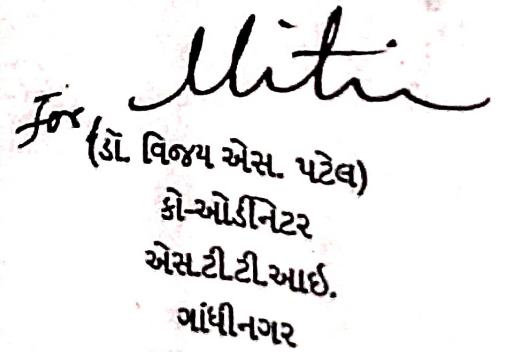 For
(ડૉ. વિજય એસ. પટેલ)
કો-ઓર્ડીનેટર
એસ.ટી.ટી.આઈ.
ગાંધીનગર